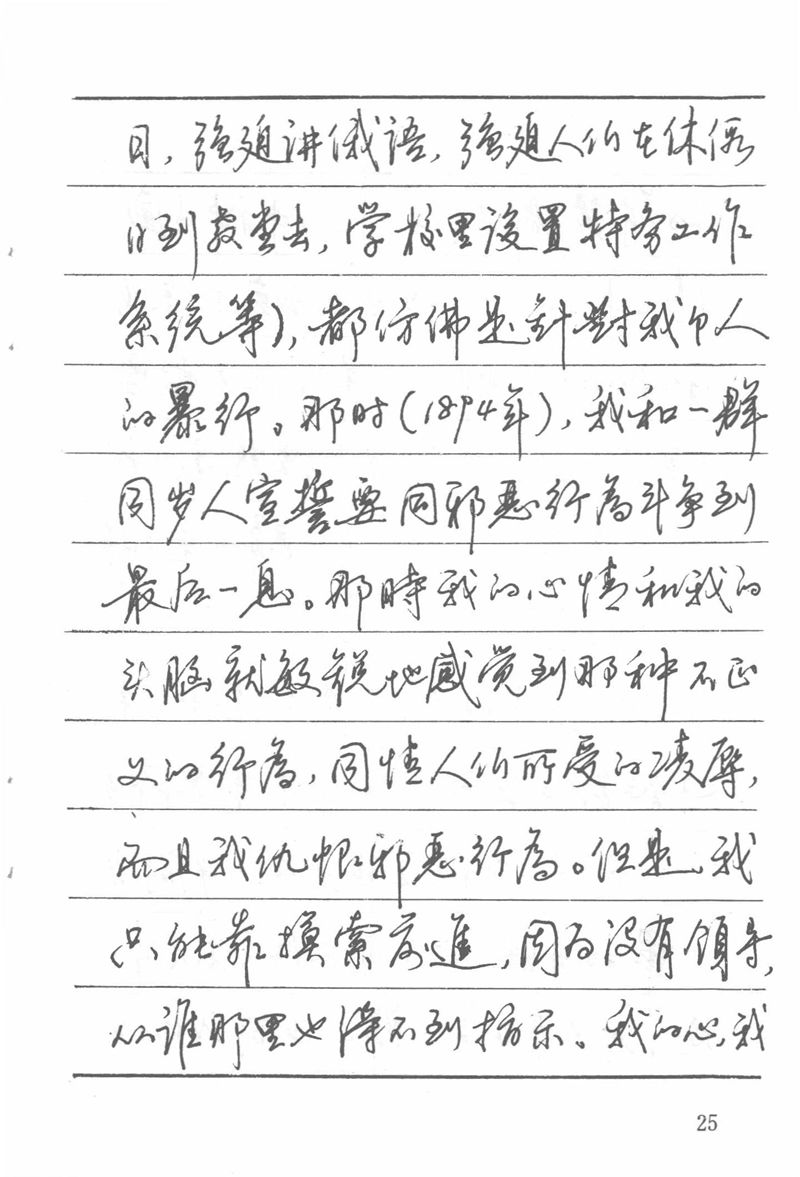 日，强迫讲俄语，强迫人们在休假
日到教堂去，学校里设置特务工作
系统等），都仿佛是針對我个人
的暴行。那时（1894年），我和一群
同岁人宣誓要同邪恶行為斗争到
最后一息。那時我的心情和我的
头脑就敏锐地感觉到那种不正
义的行為，同情人们所受的凌辱，
而且我仇恨邪恶行為。但是，我
只能靠摸索前進，因为没有領导，
从谁那里也得不到指示。我的心，我
25